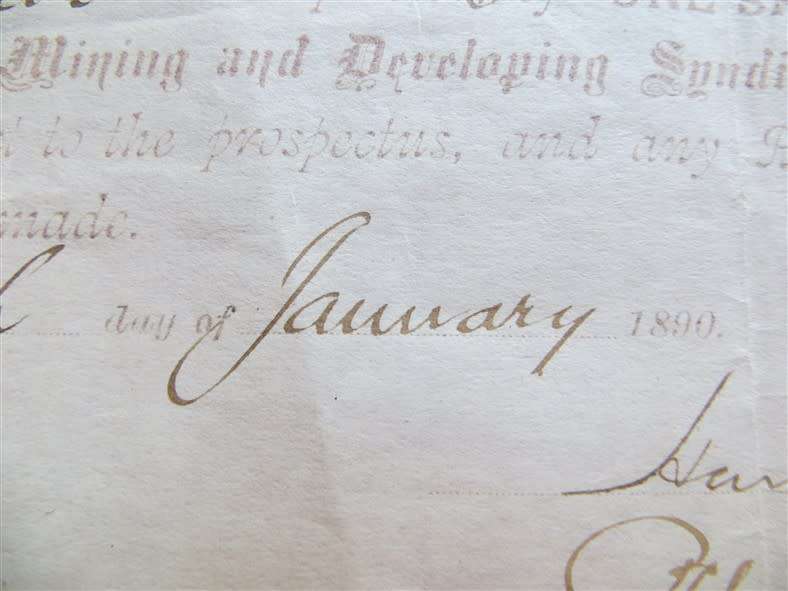 Mining and Developing Syndi
t to the prospectus, and any
made.
day of January 1890.
Har